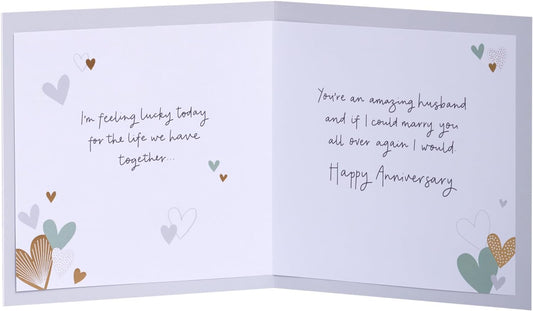 I'm feeling lucky today
for the life we have
together...
You're an amazing husband
and if I could marry you
all over again I would.
Happy Anniversary